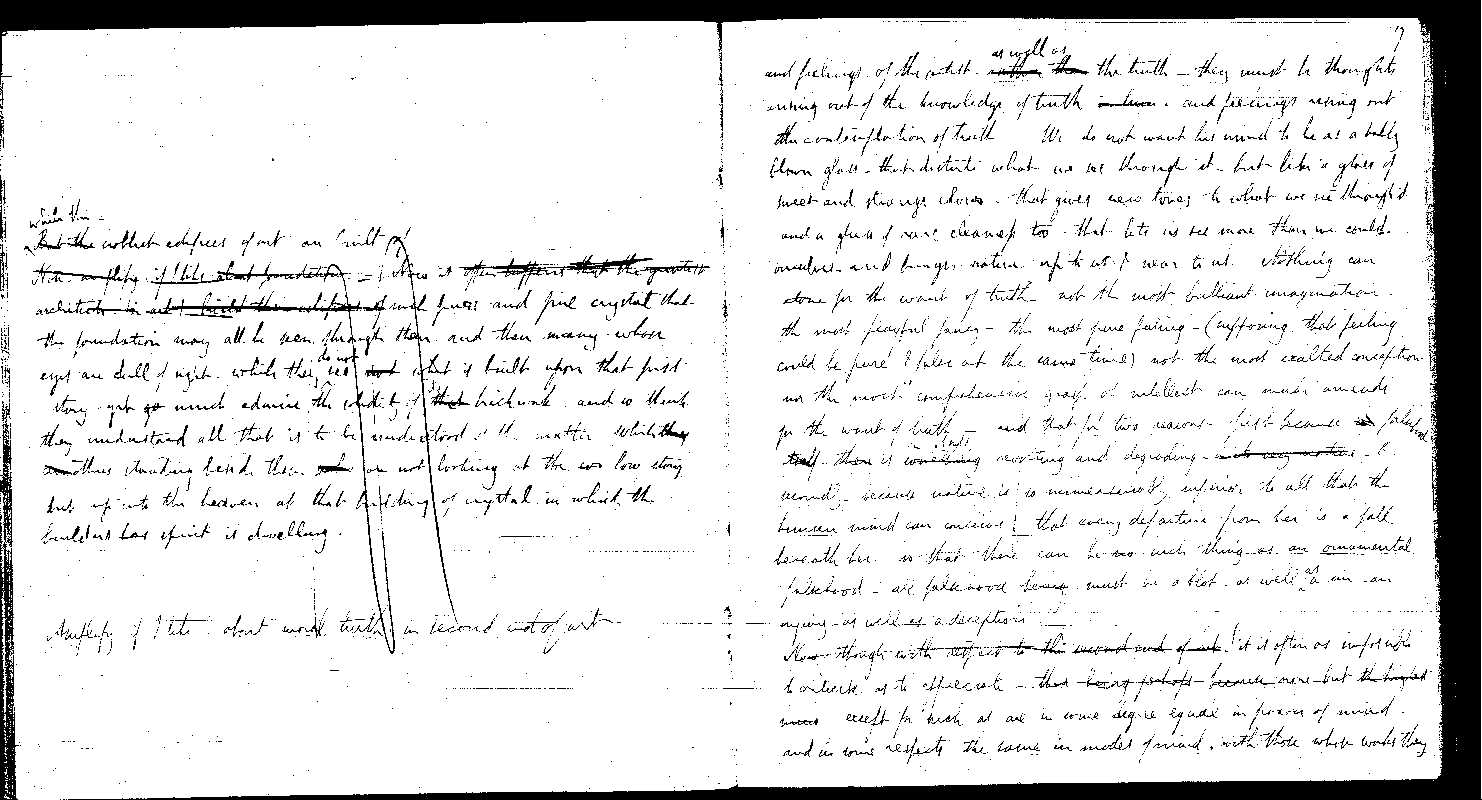 while this -
But the noblest edifices of art are built of
Here amplify if I like about foundation - I show is often happens that the greatest
architects in art build their edifices of such pure and fine crystal that
the foundation may all be seen through them and then many whose
eyes are dull of sight. while they do not see not what is built upon that first
story yet go much admire the solidity of that brickwork and so think
they understand all that is to be understood of the matter while they
another standing beside them who are not looking at the low story
but up into the heaven at that building of crystal in which the
builders has spirit is dwelling.
Amplify if I like about moral truth in second end of art
17
and feelings of the artist as well as rather than the truth - they must be thoughts
arising out of the knowledge of truth and feelings arising out
the contemplation of truth We do not want his mind to be as a badly
blown glass - that distorts what we see through it - but like a glass of
sweet and strange colour - that gives new tones to what we see through it
and a glass of rare clearness too - that lets us see more than we could
ourselves - and brings nature up to us & near to us. Nothing can
atone for the want of truth not the most brilliant imagination
the most playful fancy - the most pure feeling - (supposing that feeling
could be pure & false at the same time) not the most exalted conception
nor the most comprehensive grasp of intellect can make amends
for the want of truth - and that for two reasons - first because falsehood
is revolting and degrading
second - because nature is so immeasurably superior to all that the
human mind can conceive that every departure from her is a fall
beneath her so that there can be no such thing as an ornamental
falsehood - all falsehood being must be a blot as well as a sin - an
injury as well as a deception
Now though with respect to this second end of art it is often as impossible
to criticise as to appreciate - that being perhaps because none but the highest
minds except for such as are in some degree equal in powers of mind
and in some respects the same in modes of mind, with those whose works they